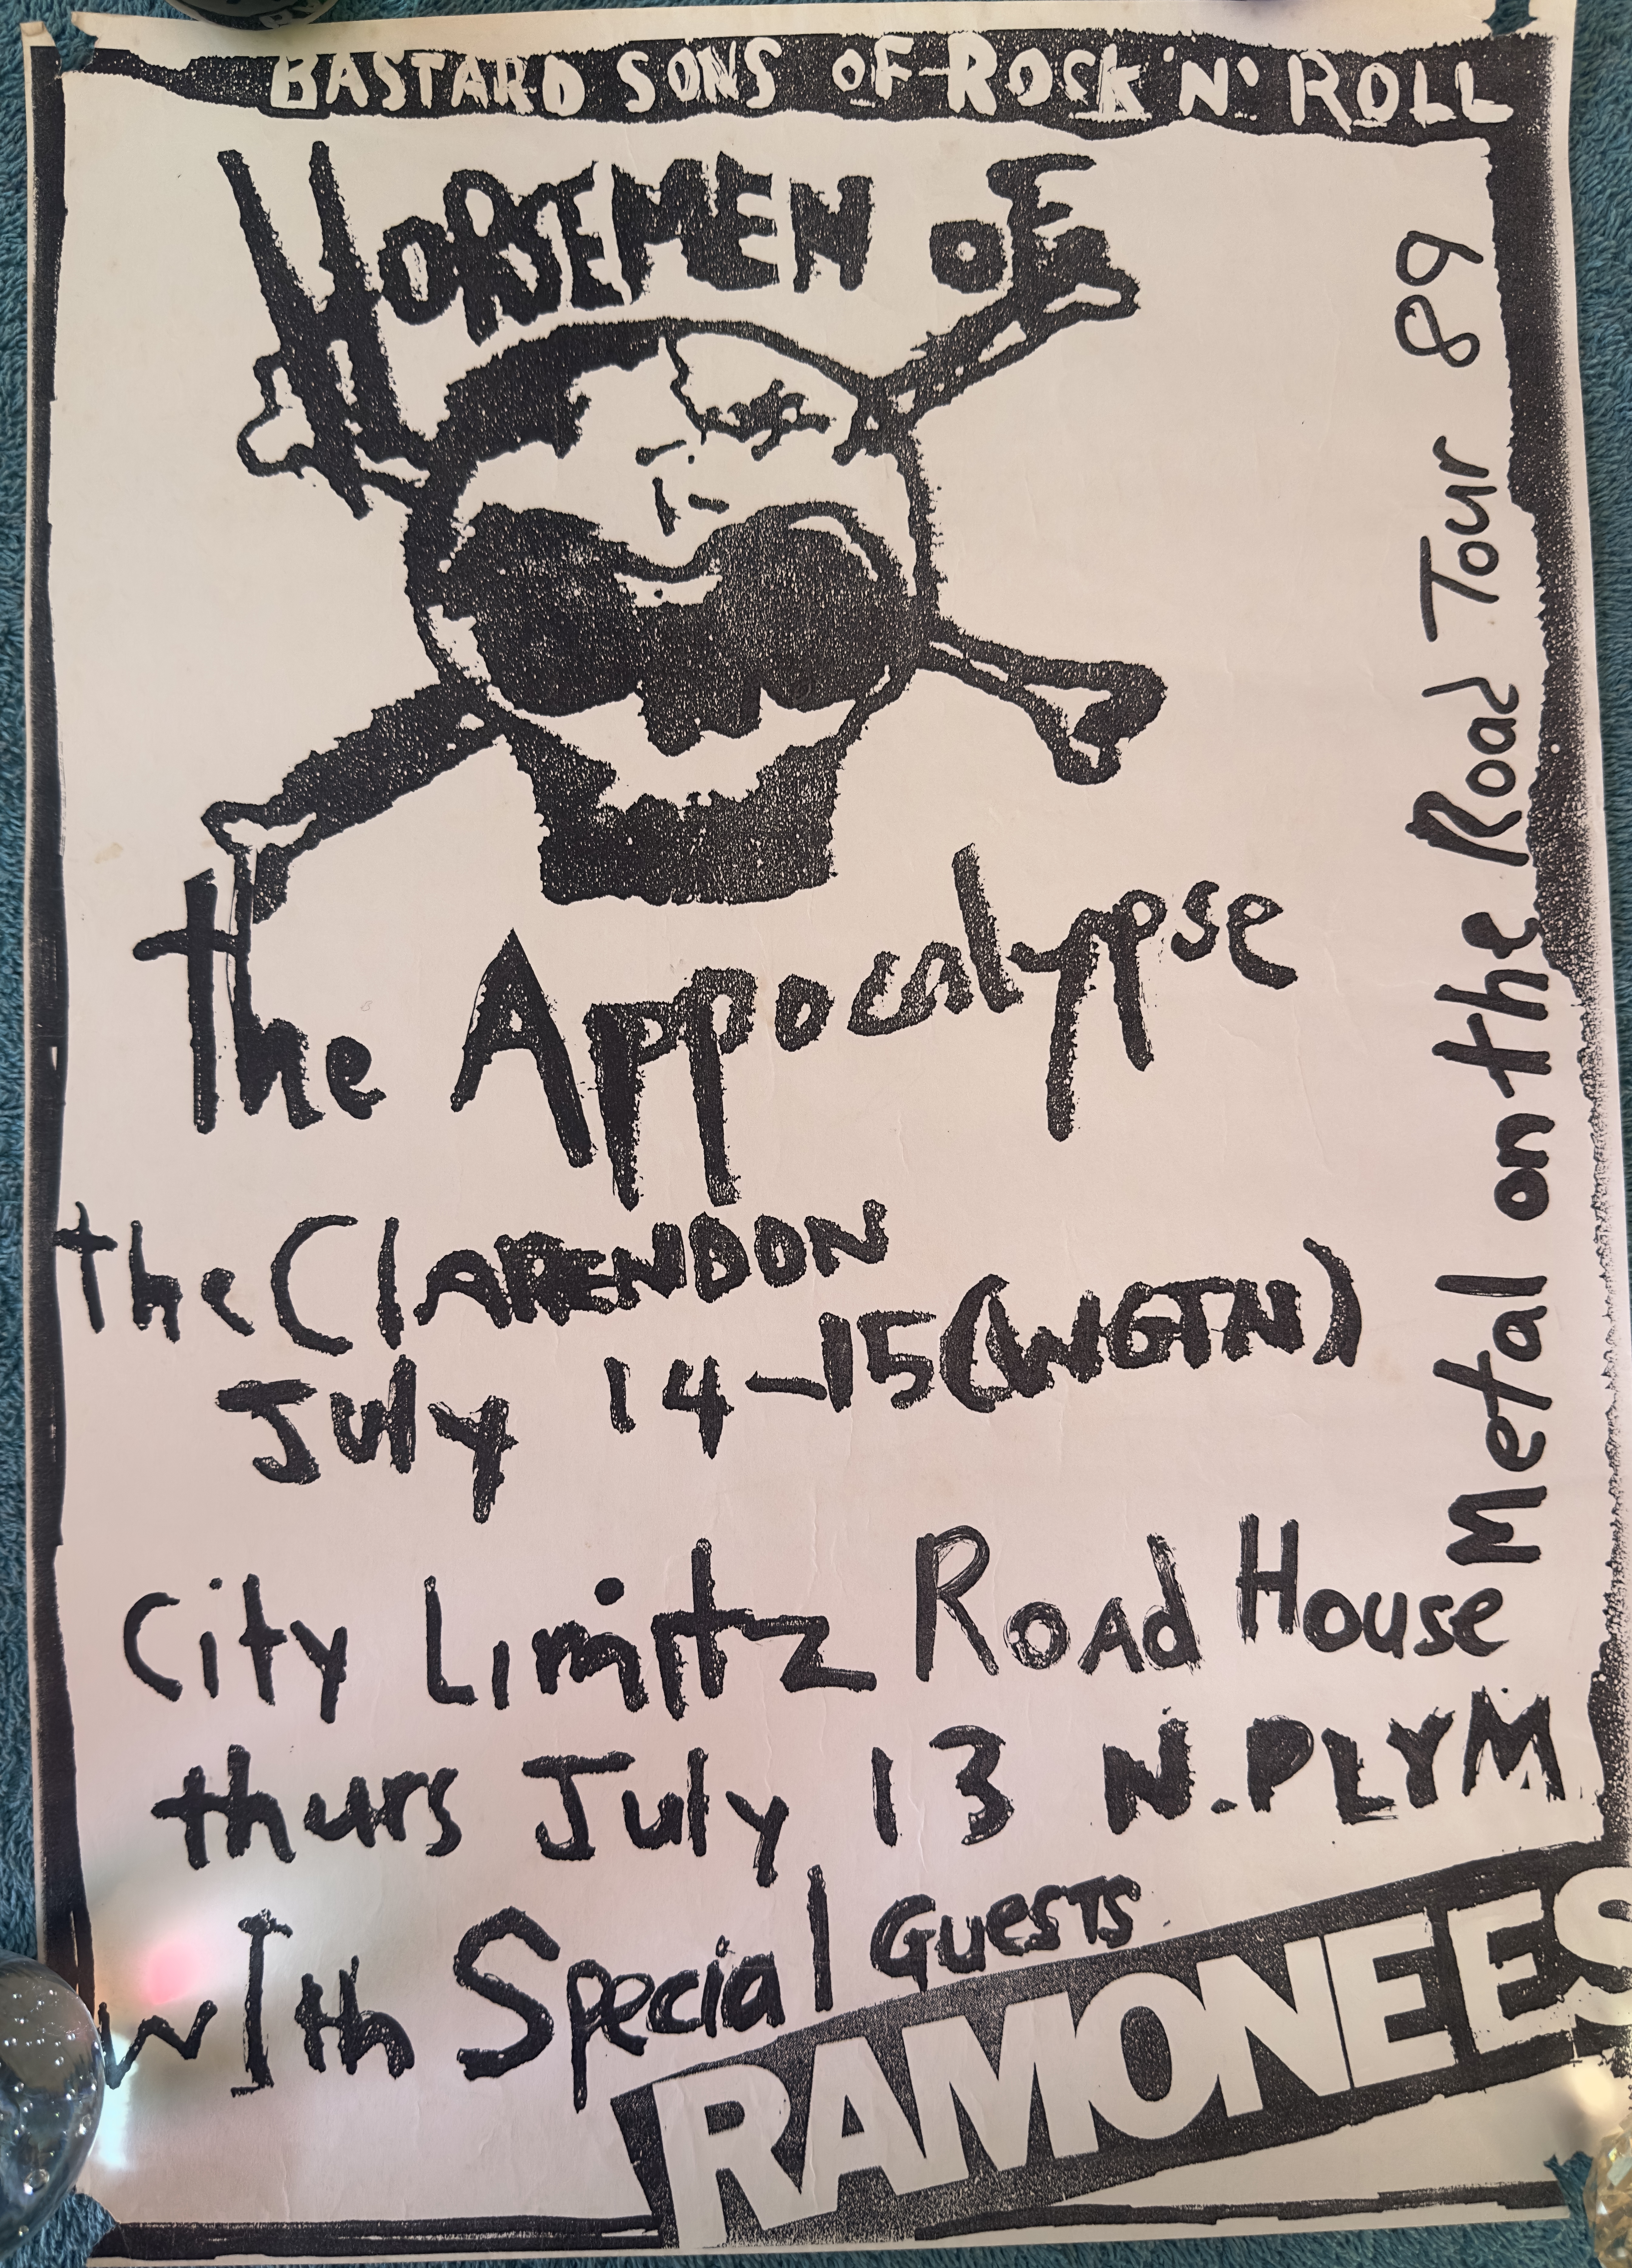 BASTARD SONS OF ROCK 'N' ROLL
HORSEMEN OF
the Appocalypse
the ClARENDON
July 14-15 (WGTN)
City Limitz Road House
thurs July 13 N.PLYM
WIth Special Guests
RAMONEES
Metal on the Road Tour 89